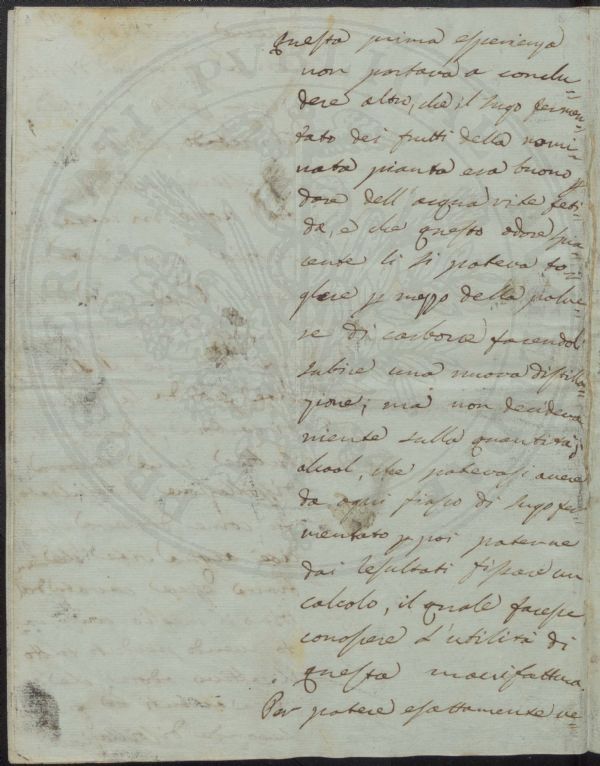 Questa prima esperienza
non portava a conclu=
dere altro, che il sugo fermen=
tato dei frutti della nomi=
nata pianta era buono p
dare dell'acqua vite feti=
da, e che questo odore spia=
cente li si poteva to=
gliere p mezzo della polve=
re di carbone facendol
subire una nuova distilla=
zione; ma non decideva
niente sulla quantità
alcool, che potevasi avere
da ogni fiasco di sugo fer=
mentato p poi poterne
dai resultati fissare un
calcolo, il quale facesse
conoscere l'utilità di
questa manifattura.
Per potere esattamente ve=